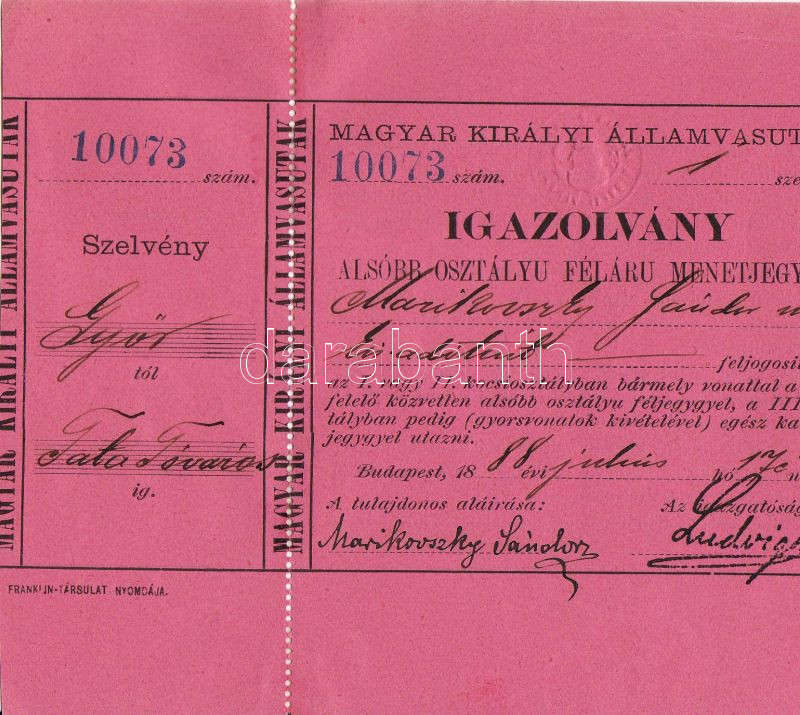 MAGYAR KIRÁLYI ÁLLAMVASUTAK
10073
szám.
Szelvény
Győr
tól
Tata Tóváros
ig.
MAGYAR KIRÁLYI ÁLLAMVASUTAK
MAGYAR KIRÁLYI ÁLLAMVASUT
10073 szám.
1
IGAZOLVÁNY
ALSÓBB OSZTÁLYU FÉLÁRU MENETJEGY
Marikovszky Sándor
feljogosit
az I. vagy II. kocsiosztályban bármely vonattal a
felelő közvetlen alsóbb osztályu féljegygyel, a III
tályban pedig (gyorsvonatok kivételével) egész ka
jegygyel utazni.
Budapest, 18 88 évi julius hó 17
A tulajdonos aláirása: Az igazgatóság
Marikovszky Sándor Ludvigh
FRANKLIN-TÁRSULAT NYOMDÁJA.
darabanth